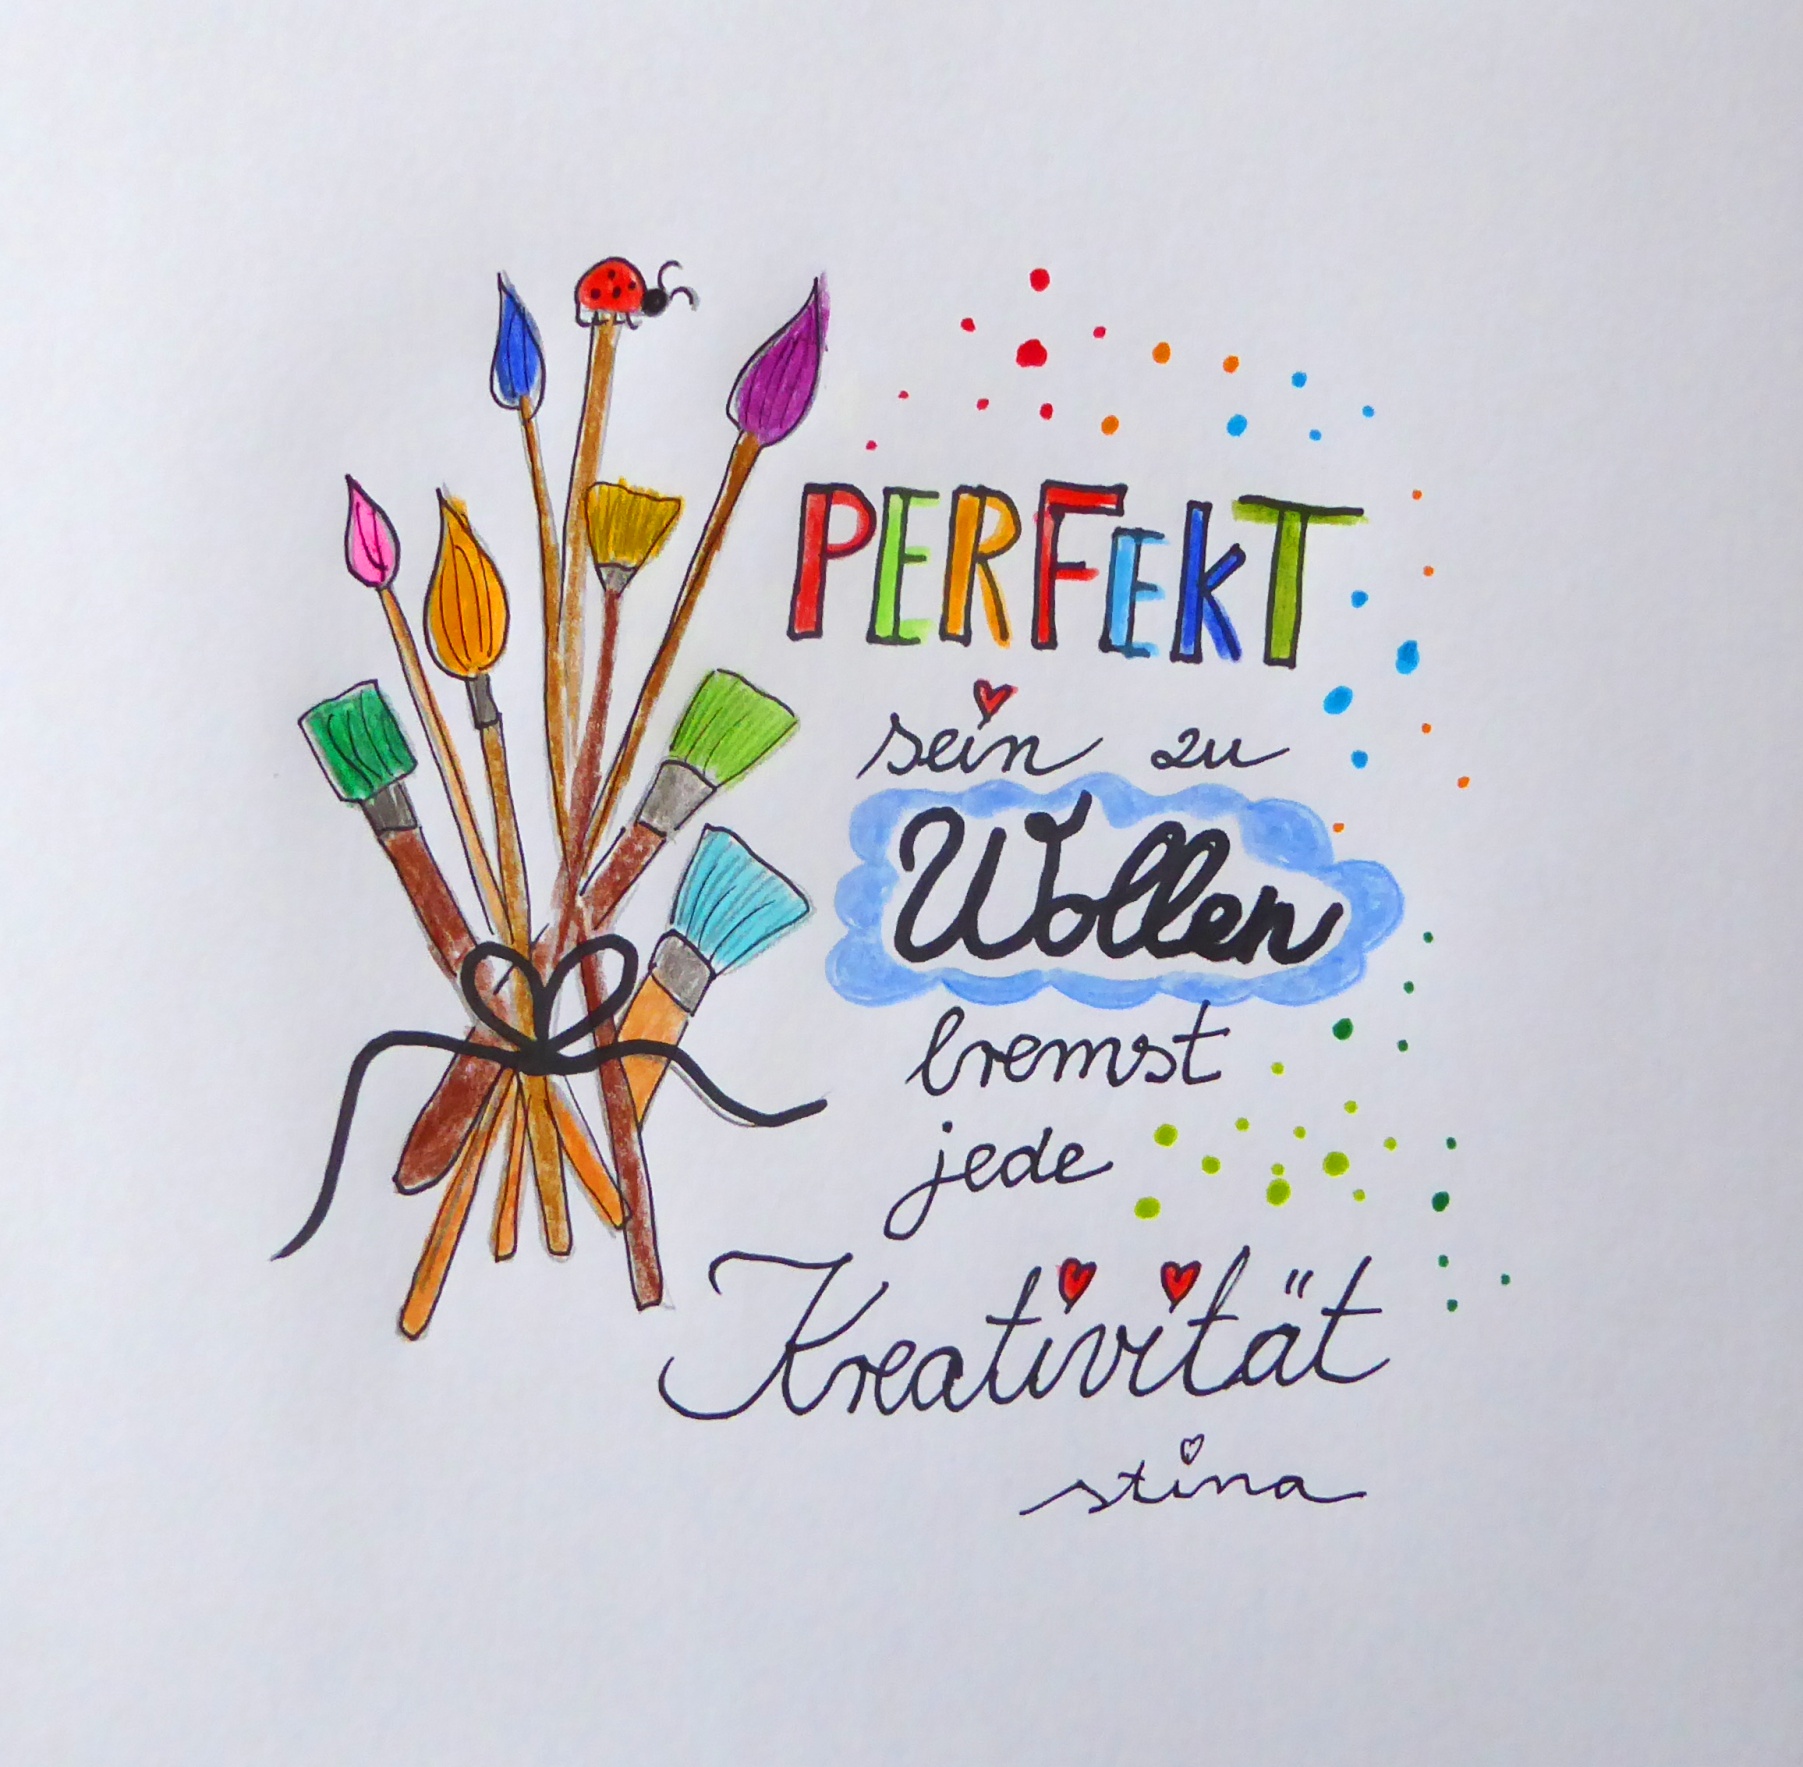 PERFEKT
sein zu
Wollen
bremst
jede
Kreativität
stina